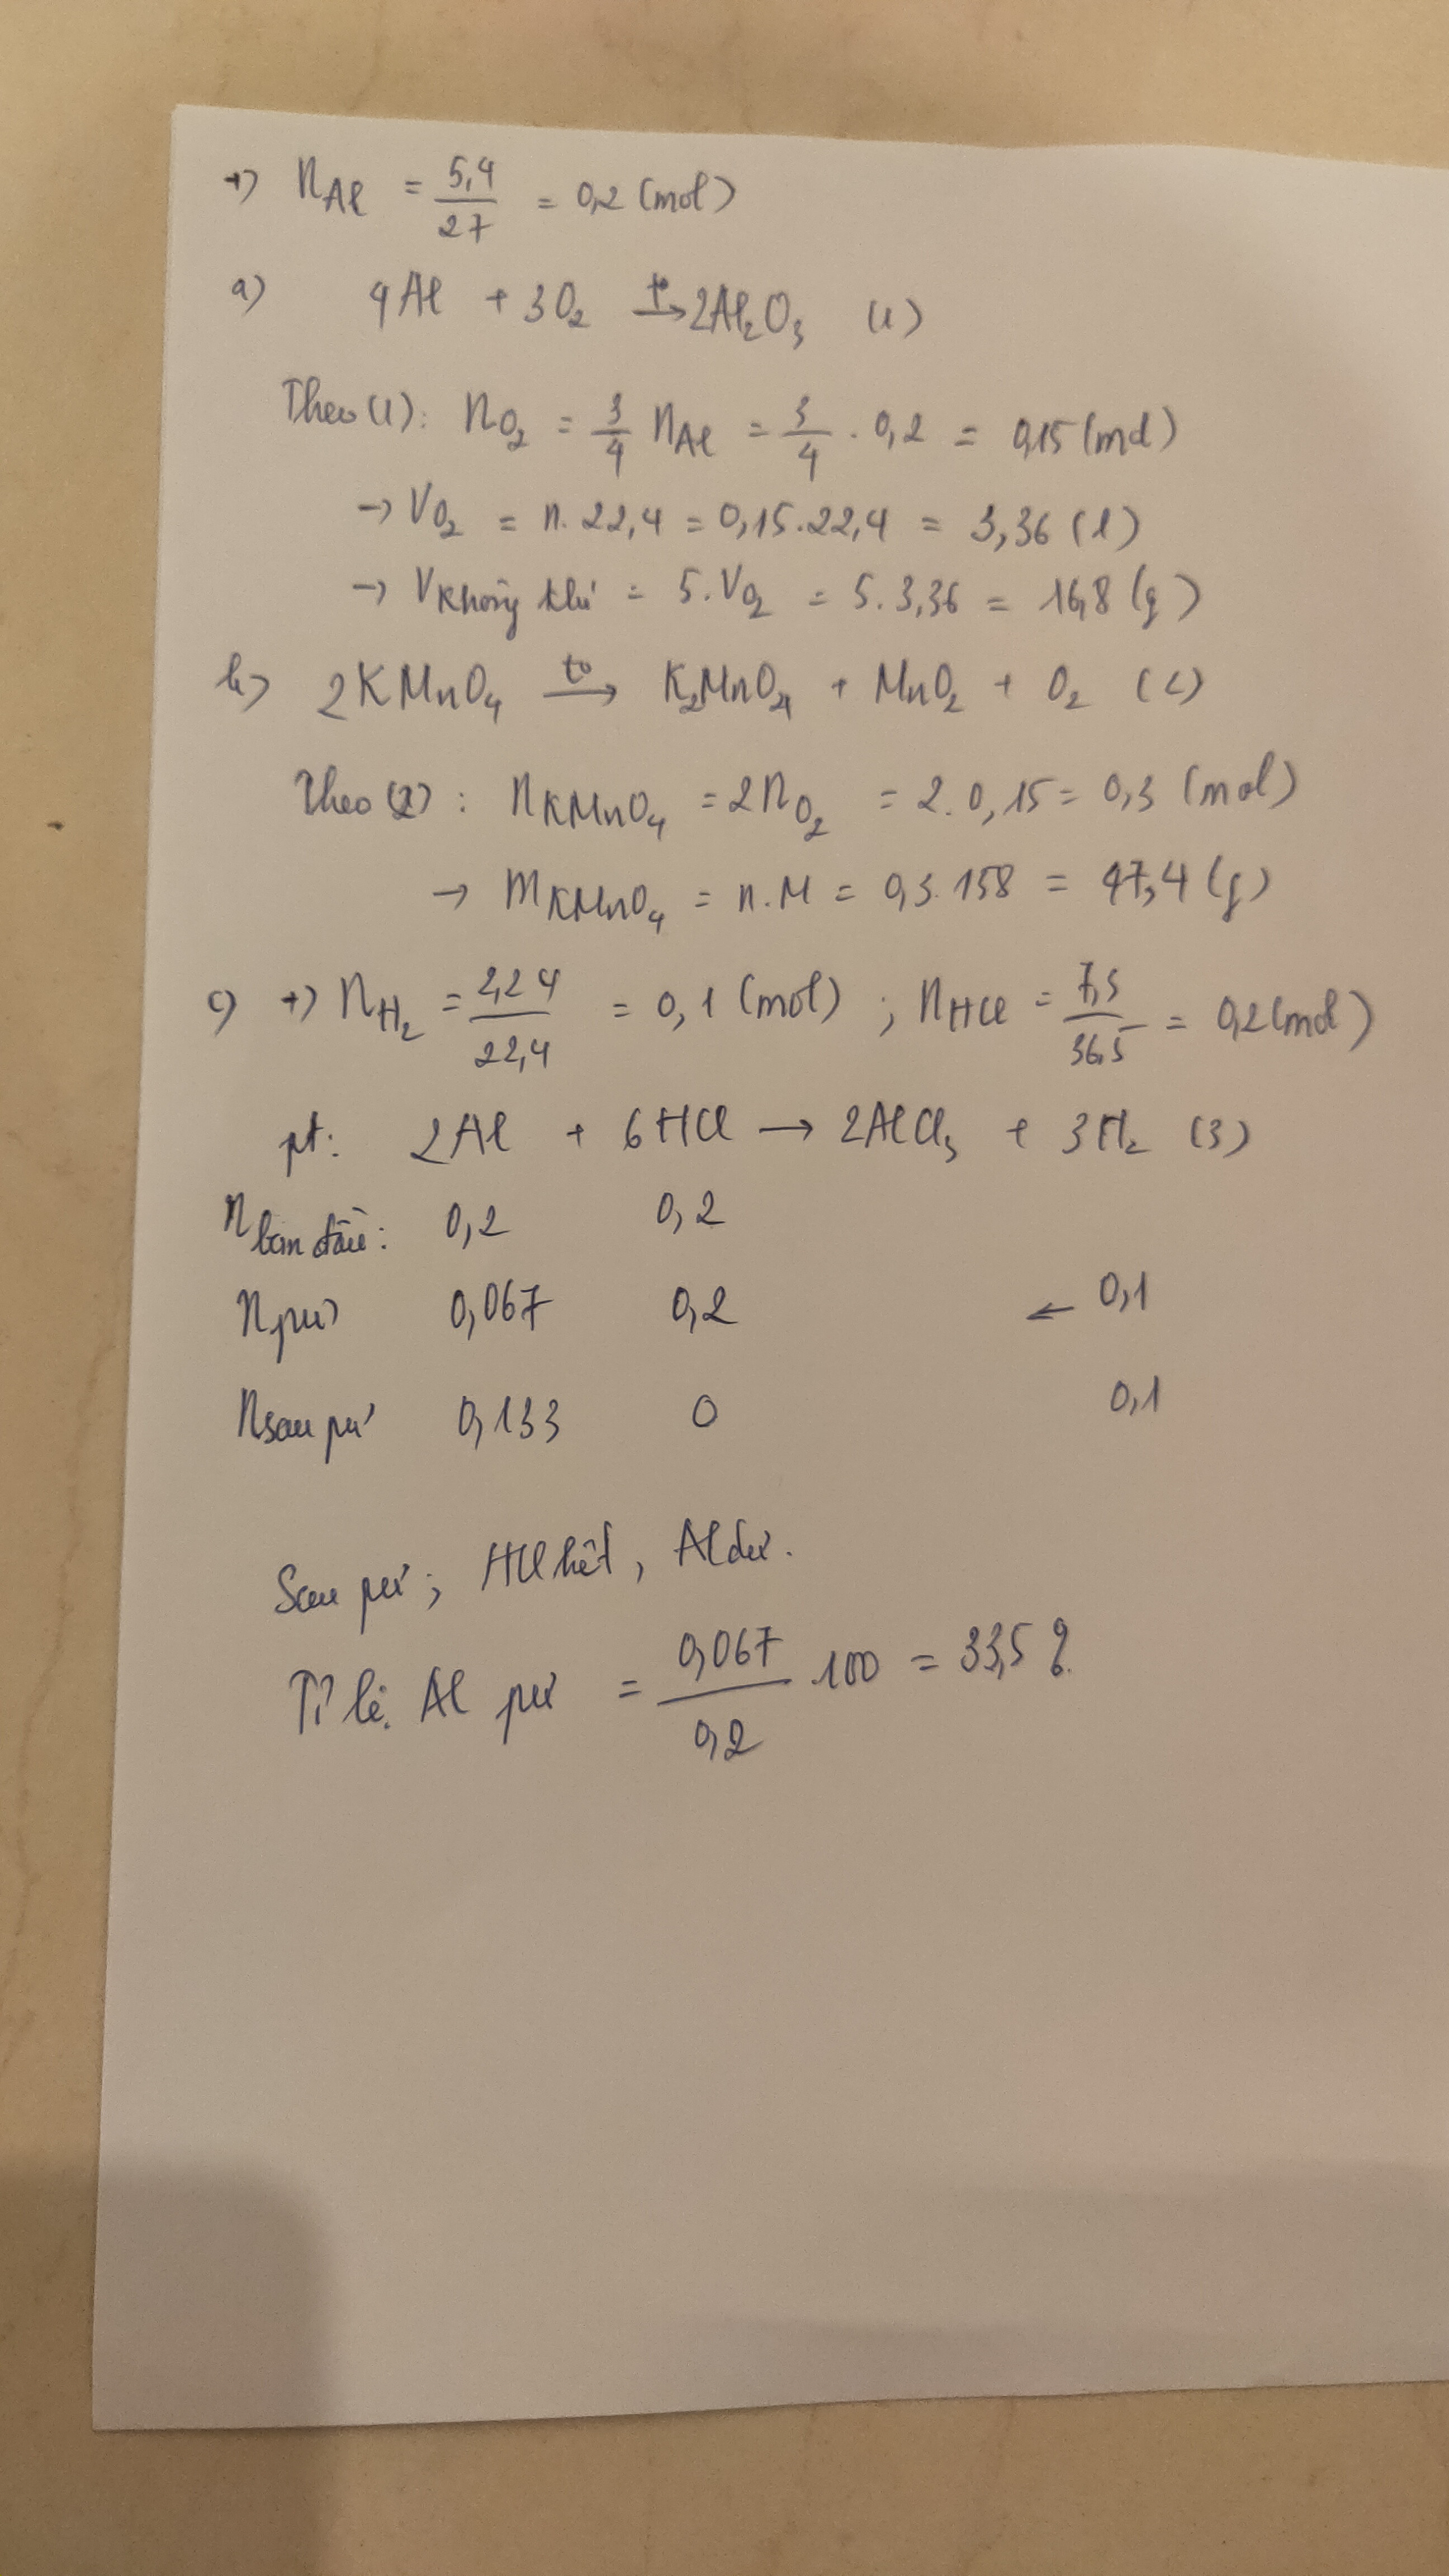 +) nAl = 5,4/27 = 0,2 (mol)
a) 4Al + 3O₂ t°→ 2Al₂O₃ (1)
Theo (1): nO₂ = 3/4 nAl = 3/4 . 0,2 = 0,15 (mol)
→ VO₂ = n. 22,4 = 0,15.22,4 = 3,36 (l)
→ Vkhông khí = 5.VO₂ = 5.3,36 = 16,8 (g)
b) 2KMnO₄ t°→ K₂MnO₄ + MnO₂ + O₂ (2)
Theo (2): nKMnO₄ = 2nO₂ = 2.0,15 = 0,3 (mol)
→ mKMnO₄ = n.M = 0,3.158 = 47,4 (g)
c) +) nH₂ = 2,24/22,4 = 0,1 (mol) ; nHCl = 7,3/36,5 = 0,2 (mol)
pt: 2Al + 6HCl → 2AlCl₃ + 3H₂ (3)
nban đầu: 0,2 0,2
npư 0,067 0,2 ← 0,1
nsau pư 0,133 0 0,1
Sau pư; HCl hết, Al dư.
Tỉ lệ Al pư = 0,067/0,2 .100 = 33,5 %